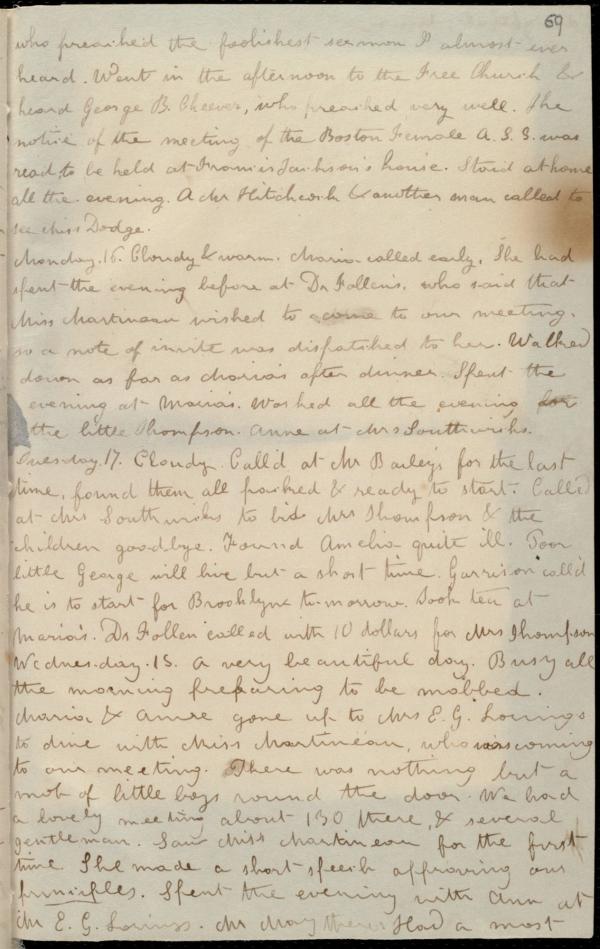 69
who preached the foolishest sermon I almost ever
heard. Went in the afternoon to the Free Church &
heard George B. Cheever, who preached very well. The
notice of the meeting of the Boston Female A. S. S. was
read, to be held at Francis Jackson's house. Staid at home
all the evening. A Mr Hitchcock & another man called to
see Miss Dodge.
Monday. 16. Cloudy & warm. Maria called early. She had
spent the evening before at Dr Follen's, who said that
Miss Martineau wished to come to our meeting.
so a note of invite was dispatched to her. Walked
down as far as Maria's after dinner. Spent the
evening at Maria's. Worked all the evening for
the little Thompson. Anne at Mrs Southwicks.
Tuesday. 17. Cloudy. Call'd at Mr Bailey's for the last
time, found them all packed & ready to start. Called
at Mrs Southwicks to bid Mrs Thompson & the
children goodbye. Found Amelia quite ill. Poor
little George will live but a short time. Garrison call'd
he is to start for Brooklyn to-morrow. Took tea at
Maria's. Dr Follen called with 10 dollars for Mrs Thompson
Wednesday. 18. A very beautiful day. Busy all
the morning preparing to be mobbed.
Maria & Anne gone up to Mrs E. G. Lorings
to dine with Miss Martineau, who was coming
to our meeting. There was nothing but a
mob of little boys round the door. We had
a lovely meeting about 130 there, & several
gentleman. Saw Miss Martineau for the first
time. She made a short speech approving our
principles. Spent the evening with Ann at
Mr E. G. Lorings. Mr May there. Had a most